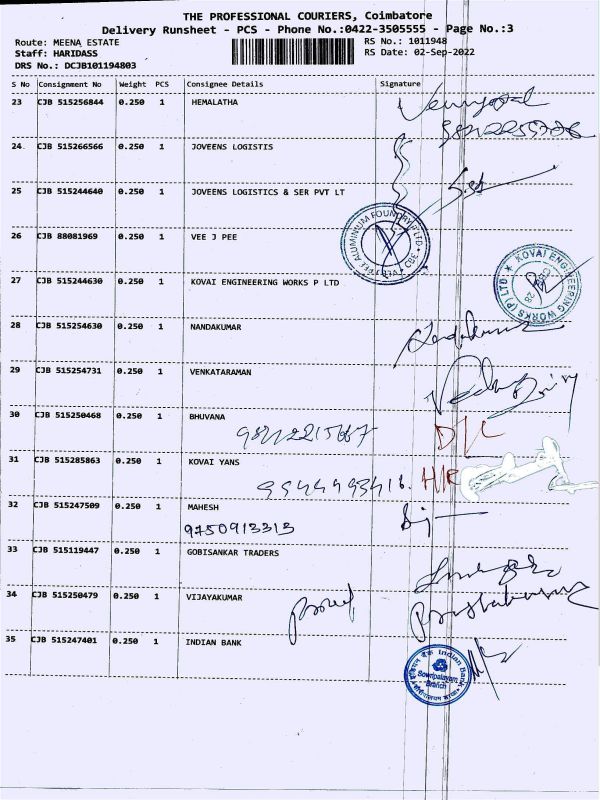 THE PROFESSIONAL COURIERS, Coimbatore
Delivery Runsheet - PCS - Phone No.:0422-3505555 - Page No.:3
Route: MEENA ESTATE RS No.: 1011948
Staff: HARIDASS RS Date: 02-Sep-2022
DRS No.: DCJB101194803
S No Consignment No Weight PCS Consignee Details Signature
23 CJB 515256844 0.250 1 HEMALATHA
24 CJB 515266566 0.250 1 JOVEENS LOGISTIS
25 CJB 515244640 0.250 1 JOVEENS LOGISTICS & SER PVT LT
26 CJB 88081969 0.250 1 VEE J PEE
ALUMINIUM FOUNDRY (P) LTD
CBE
27 CJB 515244630 0.250 1 KOVAI ENGINEERING WORKS P LTD
KOVAI ENGINEERING WORKS (P) LTD
28 CJB 515254630 0.250 1 NANDAKUMAR
29 CJB 515254731 0.250 1 VENKATARAMAN
30 CJB 515250468 0.250 1 BHUVANA
D/L
31 CJB 515285863 0.250 1 KOVAI YANS
H/R
32 CJB 515247509 0.250 1 MAHESH
9750913313
33 CJB 515119447 0.250 1 GOBISANKAR TRADERS
34 CJB 515250479 0.250 1 VIJAYAKUMAR
35 CJB 515247401 0.250 1 INDIAN BANK
Indian Bank
Sowripalayam
Branch